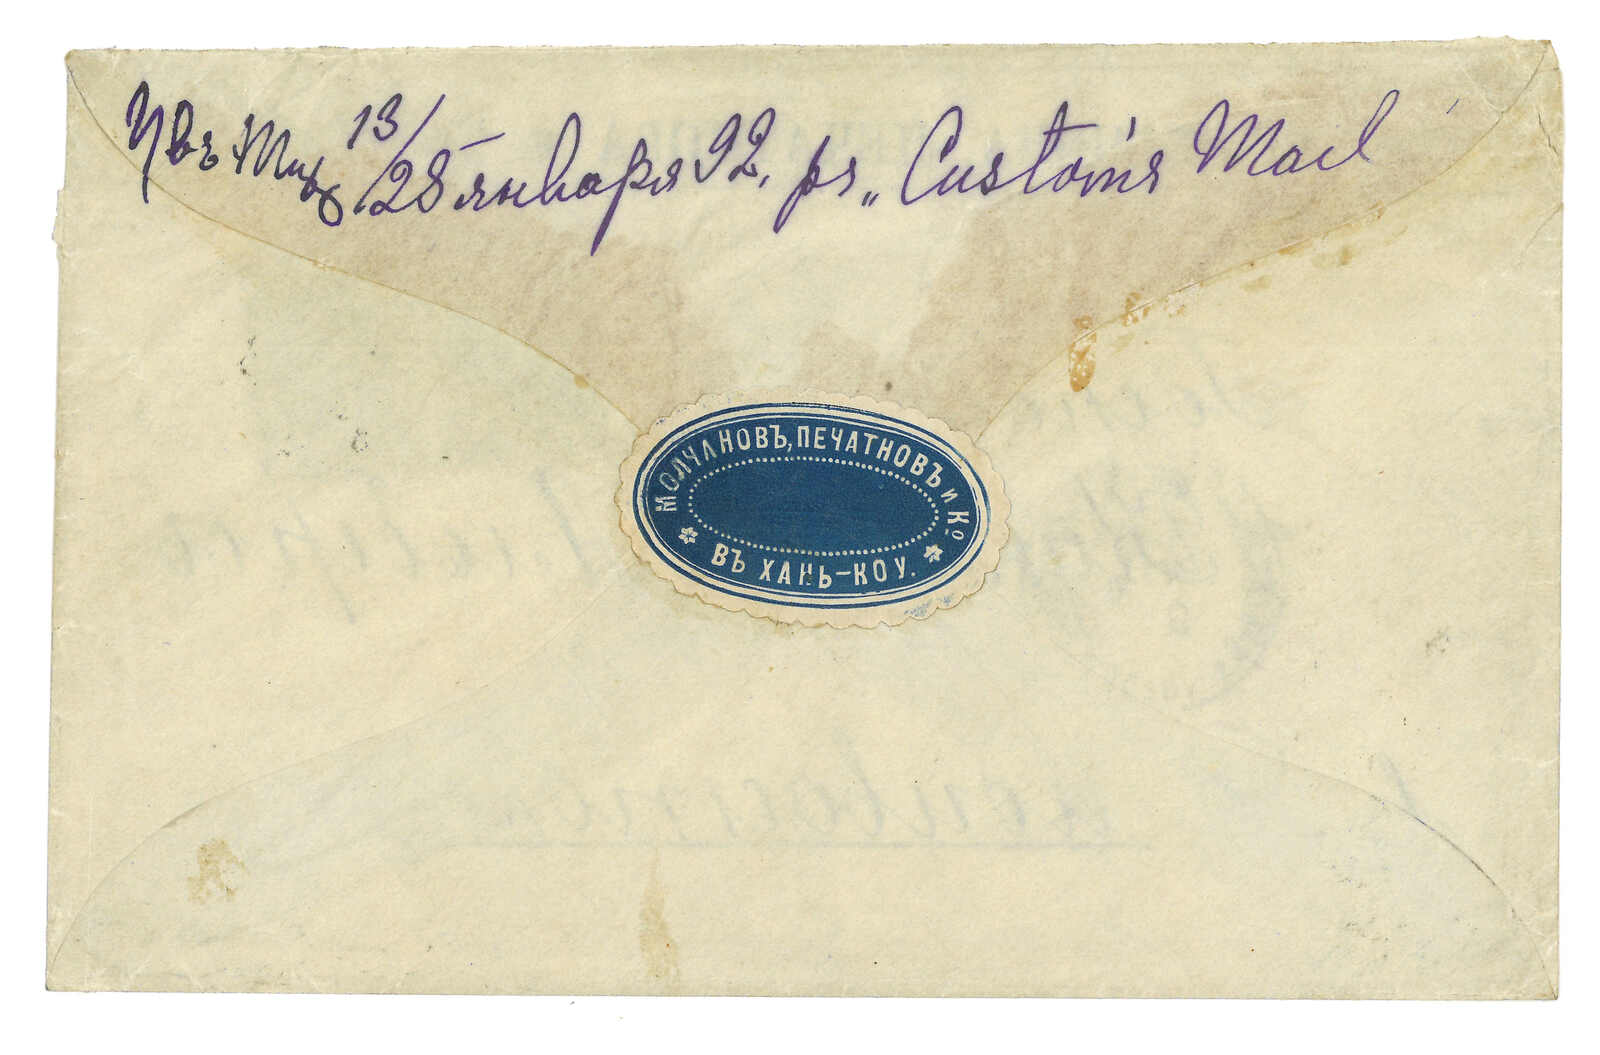 13/25 января 92, pr „Custom's Mail
МОЛЧАНОВЪ, ПЕЧАТНОВЪ и Ко
ВЪ ХАНЬ-КОУ.